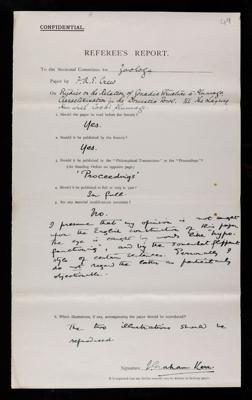 CONFIDENTIAL.
REFEREE'S REPORT.
To the Sectional Committee for Zoology
Paper by F. A. E. Crew
On Studies on the Relation of Gonadic Structure to Plumage
Characterisation in the Domestic Fowl. III. The Laying
Hen with Cock's Plumage.
1. Should the paper be read before the Society?
Yes.
2. Should it be published by the Society?
Yes.
3. Should it be published in the "Philosophical Transactions" or the "Proceedings"?
(See Standing Orders on opposite page.)
'Proceedings'
4. Should it be published in full or only in part?
In full
5. Are any material modifications necessary?
No.
I presume that my opinion is not sought
upon the English construction of this paper.
The eye is caught by words like hypo-
functioning, and by the somewhat flippant
style of certain sentences. Personally I
do not regard the latter as particularly
objectionable.
6. Which illustrations, if any, accompanying the paper should be reproduced?
The two illustrations should be
reproduced
Signature, J Graham Kerr.